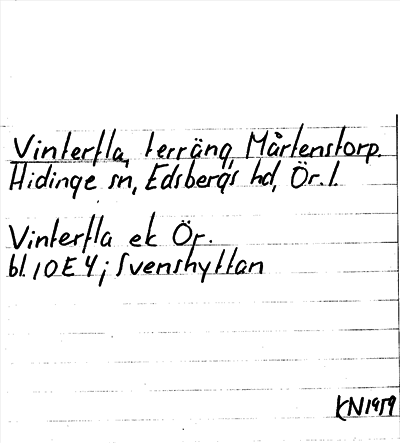 Vinterfla, terräng, Mårtenstorp.
Hidinge sn, Edsbergs hd, Ör. l.
Vinterfla ek Ör.
bl. 10E 4 j Svenshyttan
KN1959